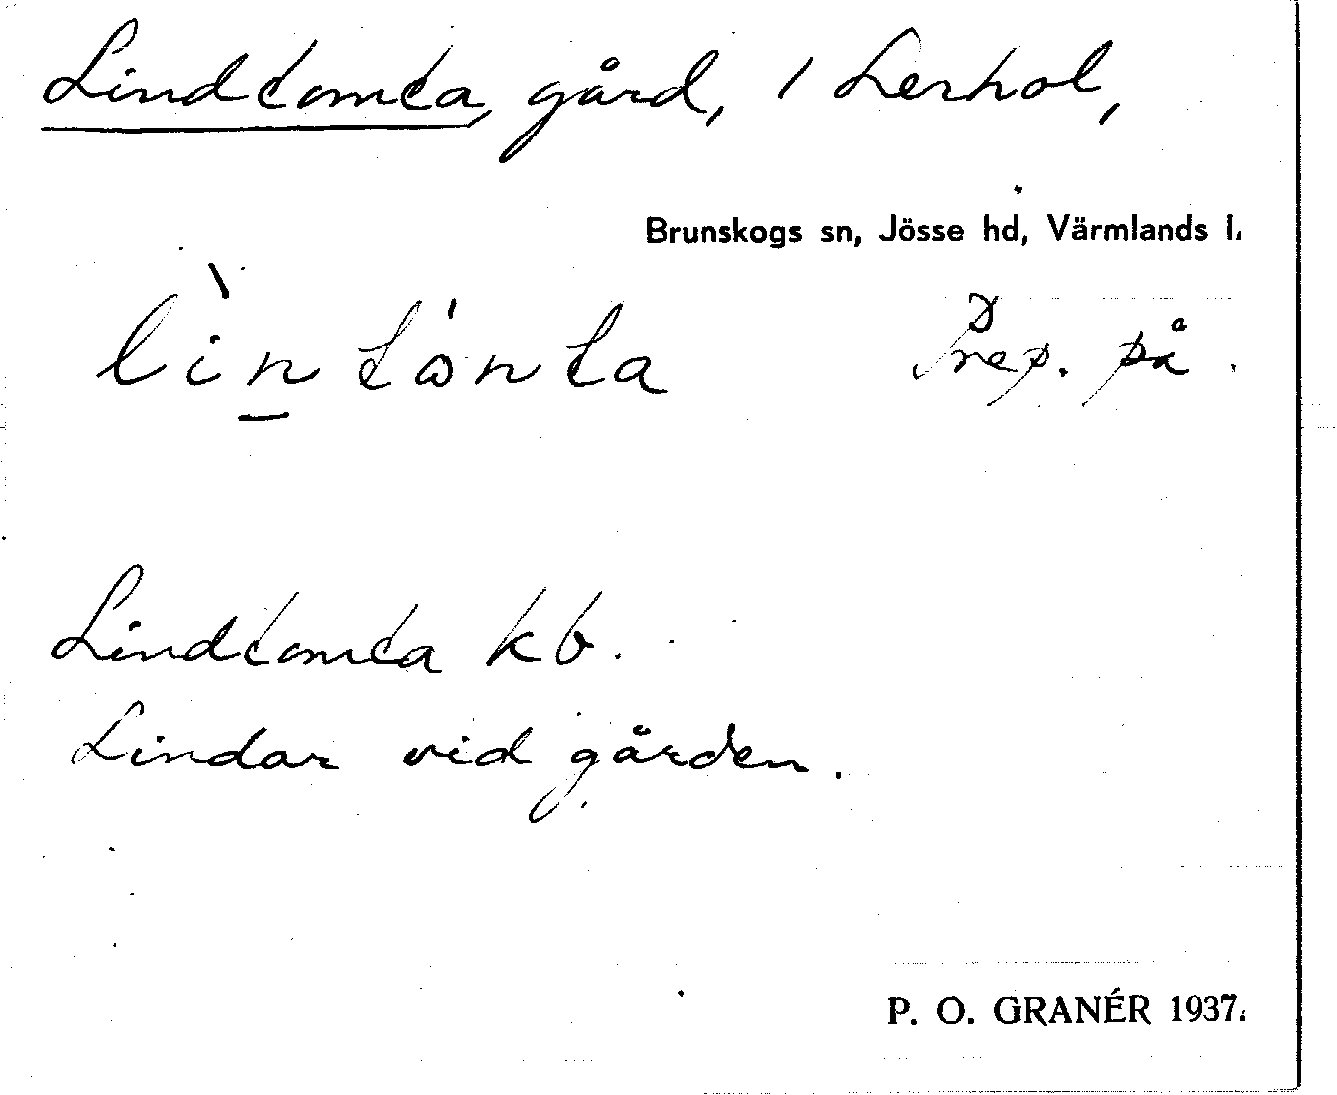 Lindtomta, gård, 1 Lerhol,
Brunskogs sn, Jösse hd, Värmlands l.
Prep. på.
Lindtomta kb.
Lindar vid gården.
P. O. GRANÉR 1937.